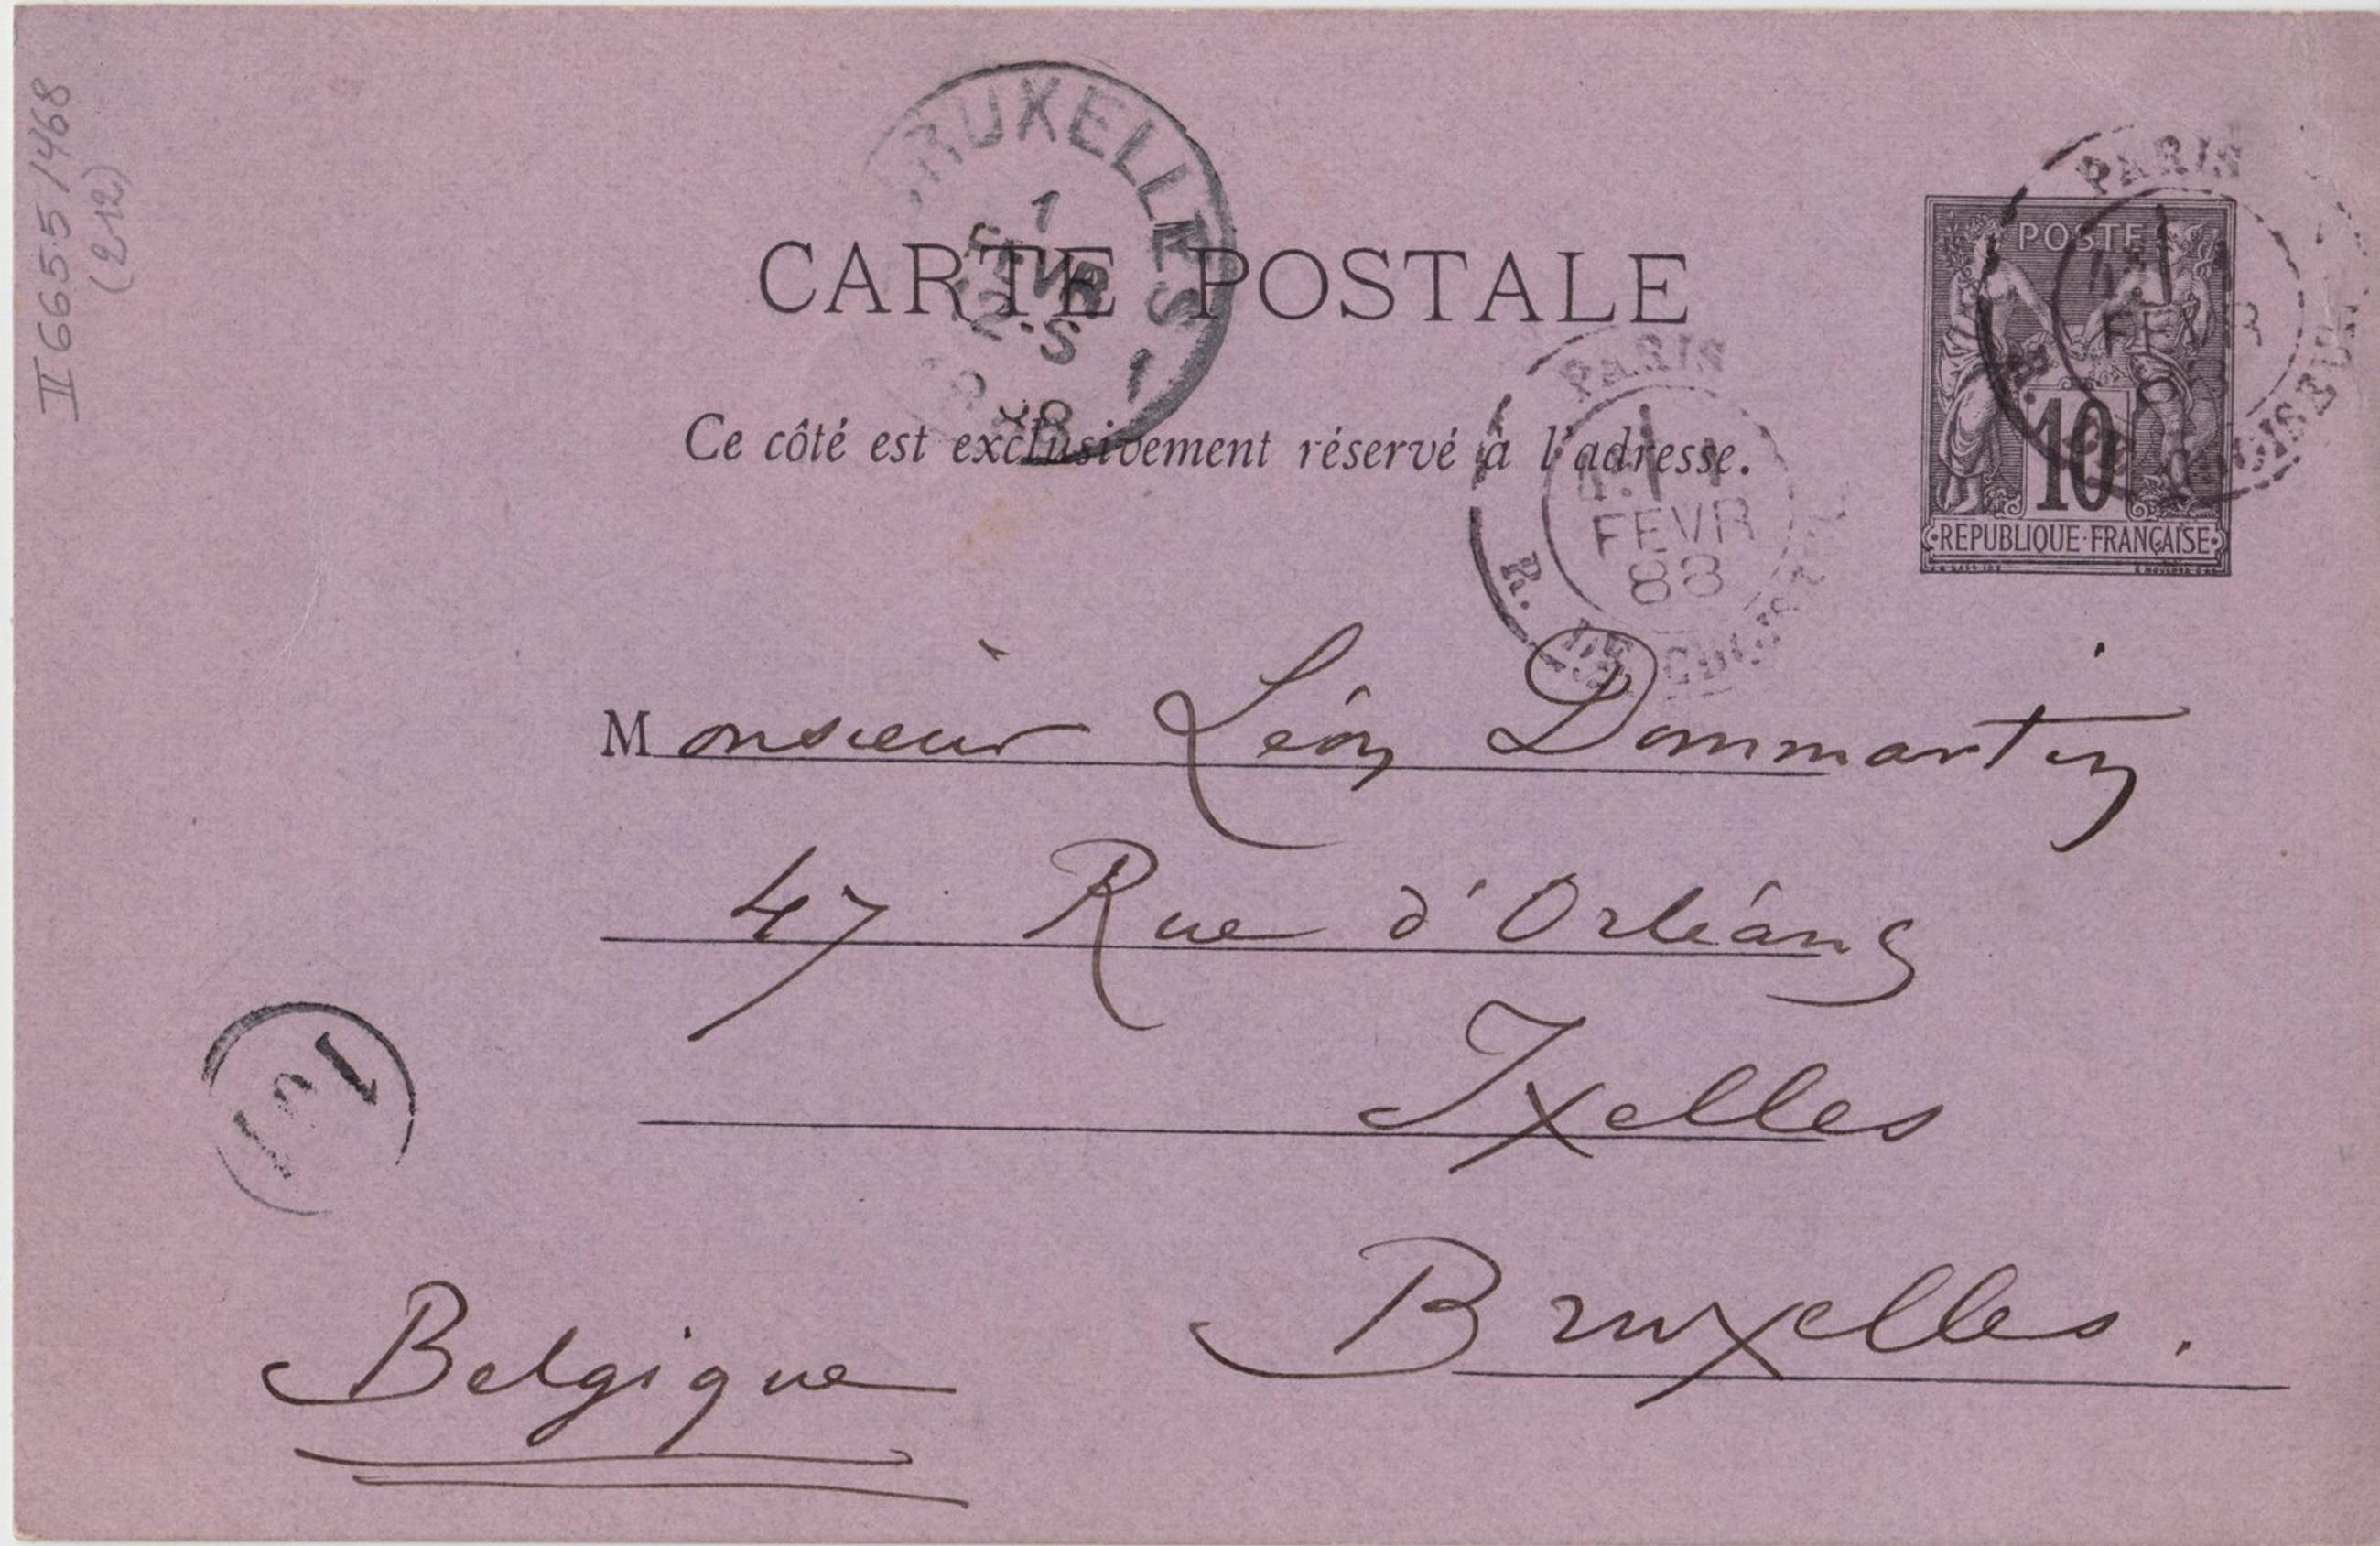 II 6655/1468
(212)
BRUXELLES
1
FEVR
12-S
1
88
CARTE POSTALE
Ce côté est exclusivement réservé à l'adresse.
PARIS
FEVR
POSTE
10
REPUBLIQUE·FRANÇAISE
PARIS
FEVR
88
R. DE
Monsieur Léon Dommartin
47 Rue d'Orléans
Ixelles
Bruxelles.
Belgique